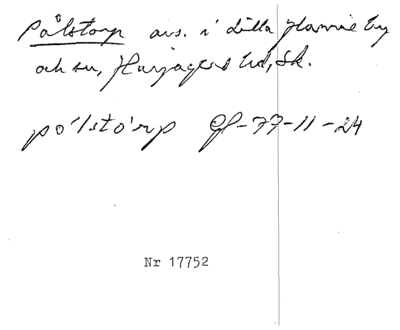 Pålstorp avs. i Lilla Harrie by
och sn, Harjagers hd, Sk.
på'lstå'rp Gf-77-11-24
Nr 17752